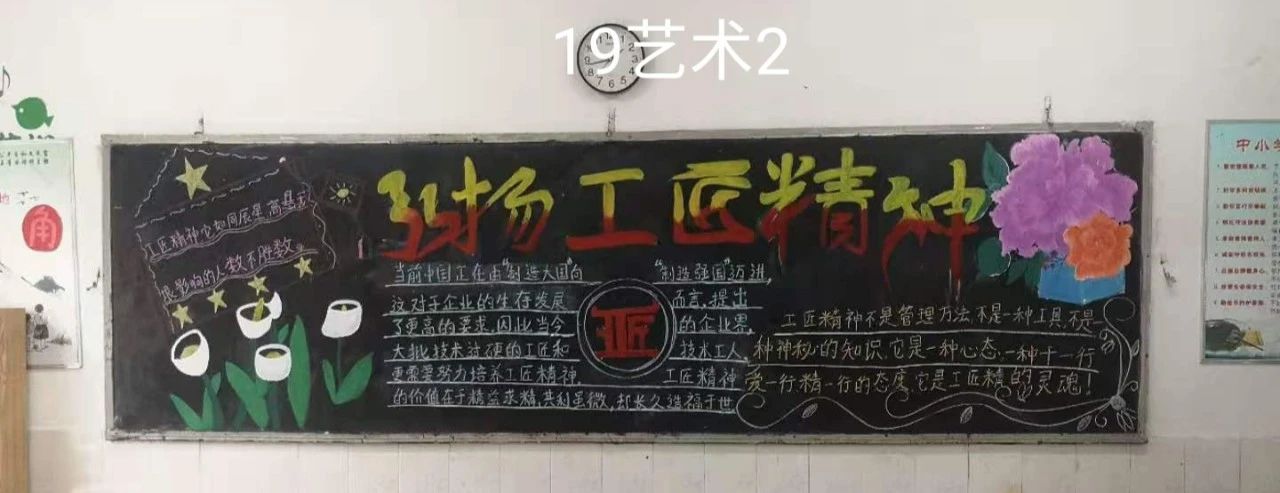 19艺术2
弘扬工匠精神
工匠精神它如同辰星高悬或
很影响的人数不胜数。
当前中国正在由"制造大国"向"制造强国"迈进,
这对于企业的生存发展而言,提出
了更高的要求,因此当今的企业界,
大批技术过硬的工匠和技术工人,
更需要努力培养工匠精神,工匠精神
的价值在于精益求精,其利虽微,却长久造福于世
工匠
工匠精神不是管理方法,不是一种工具,不是一
种神秘的知识,它是一种心态,一种干一行
爱一行精一行的态度,它是工匠精的灵魂!
角
中小学